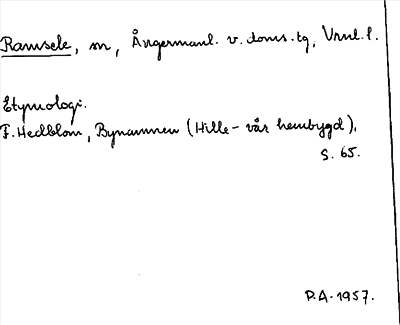 Ramsele, sn, Ångermanl. v. doms.-tg, Vnl. l.
Etymologi.
F. Hedblom, Bynamnen (Hille - vår hembygd),
S. 65.
P.A. 1957.